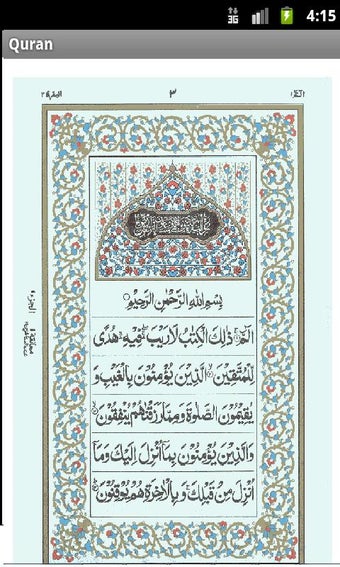 3G 4:15
Quran
الٓمّٓ ١ ٣ البقرة ٢
بِسْمِ اللّٰهِ الرَّحْمٰنِ الرَّحِیْمِ
الٓمّٓ ذٰلِكَ الْكِتٰبُ لَا رَیْبَ فِیْهِ هُدًی
لِّلْمُتَّقِیْنَ الَّذِیْنَ یُؤْمِنُوْنَ بِالْغَیْبِ وَ
یُقِیْمُوْنَ الصَّلٰوةَ وَمِمَّا رَزَقْنٰهُمْ یُنْفِقُوْنَ
وَالَّذِیْنَ یُؤْمِنُوْنَ بِمَاۤ اُنْزِلَ اِلَیْكَ وَمَاۤ
اُنْزِلَ مِنْ قَبْلِكَ وَبِالْاٰخِرَةِ هُمْ یُوْقِنُوْنَ